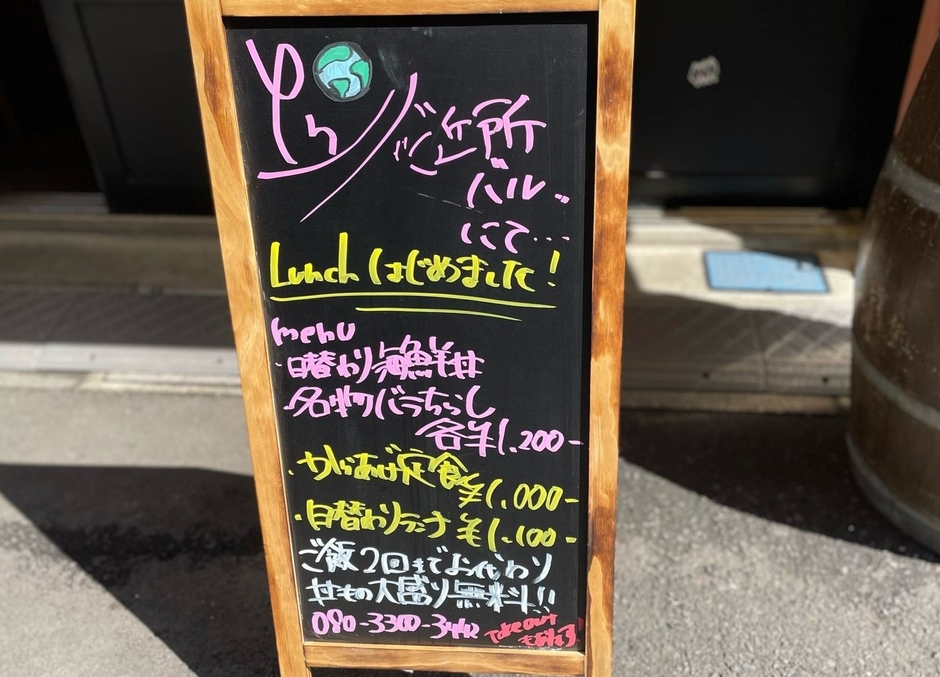 ご近所
バル..
にて...
Lunchはじめました!
menu
・日替わり海鮮丼
・名物バラちらし
各¥1.200-
・からあげ定食
¥1.000-
・日替わりランチ ¥1.100-
ご飯2回までお代わり
丼もの大盛り無料!!
080-3300-3442
Take out